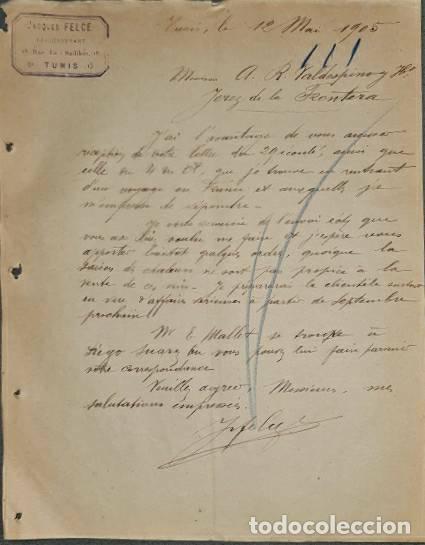 JACQUES FELCE
REPRÉSENTANT
TUNIS
Tunis, le 12 Mai 1905
Monsieur A. R. Valdespino y Hº
Jerez de la Frontera
J'ai l'avantage de vous accuser
reception de votre lettre du 20 écoulé, ainsi que
celle du 4 ct, que je trouve en rentrant
d'un voyage en France et auxquelles je
m'empresse de répondre.
Je vous remercie de l'envoi que
vous me faire et j'espère vous
apporter bientot quelques ordres, quoique la
saison de chaleurs ne soit pas propice à la
vente de ces vins. Je la clientèle surtout
en vue d'affaires à partir de Septembre
prochain.
Mr E. Mallet se trouve à
Diego Suarez ou vous pouvez lui faire parvenir
votre correspondance
Veuillez agréer, Messieurs, mes
salutations empressées.
todocoleccion.net